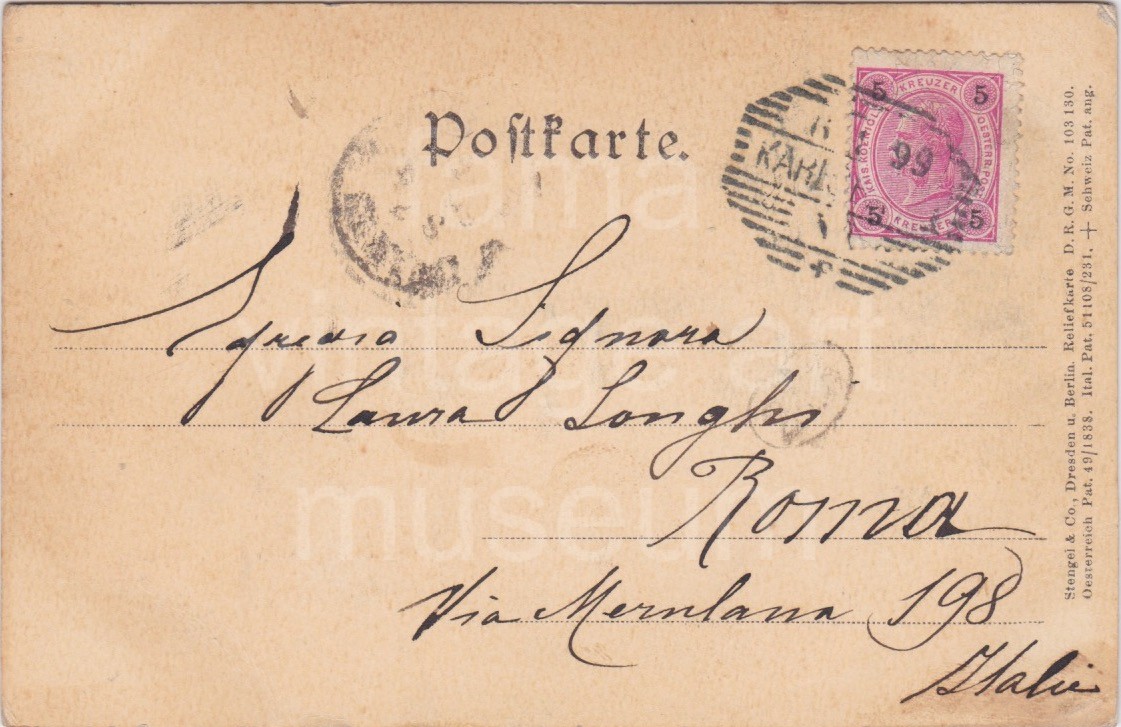 Postkarte.
5 KREUZER 5
KAIS. KOENIGL. OESTERR. POST
5 KREUZER 5
99
Egregia Signora
Laura Longhi
Roma
Via Merulana 198
Italie
Stengel & Co., Dresden u. Berlin. Reliefkarte D. R. G. M. No. 103 130.
Oesterreich Pat. 49/1838. Ital. Pat. 51108/231. + Schweiz Pat. ang.
fama
vintage art
museum